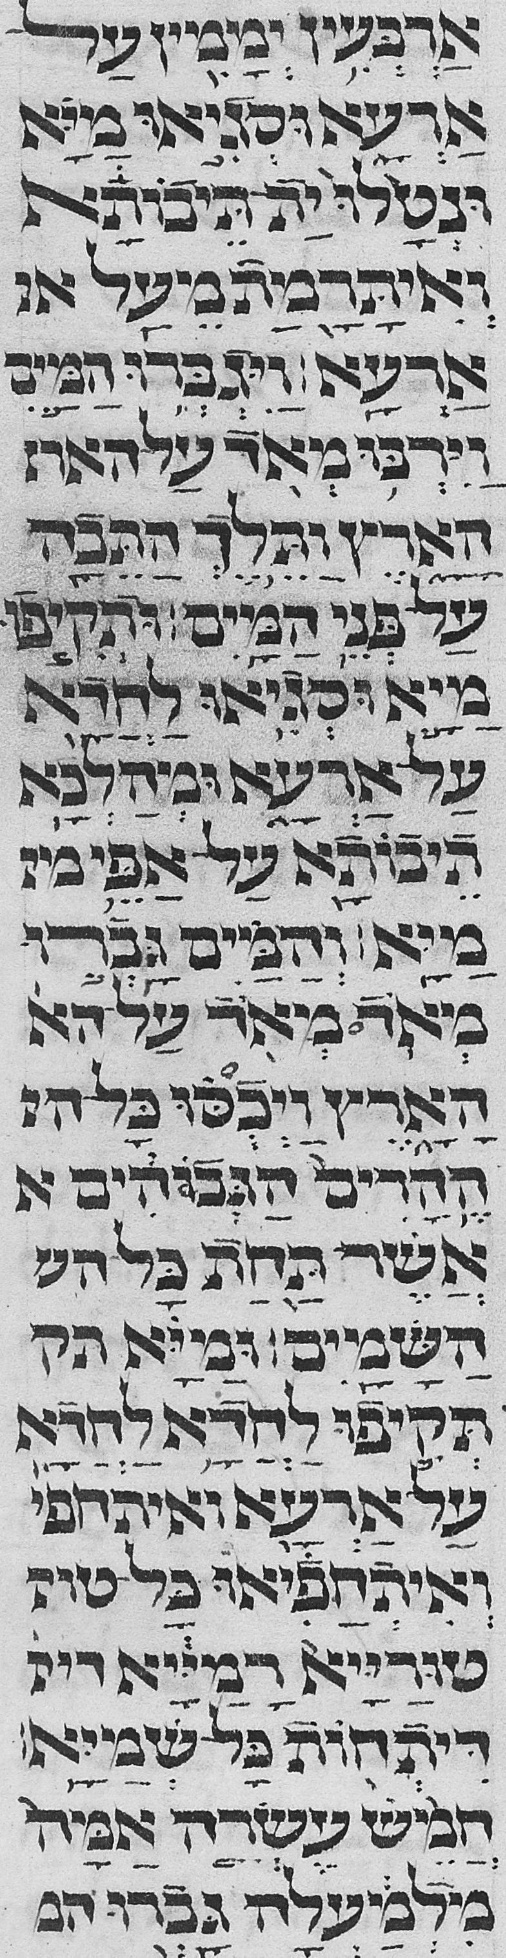 אַרְבְּעִין יְמָמִין עַל
אַרְעָא וּסְגִיאוּ מַיָּא
וּנְטָלוּ יָת תֵּיבוֹתָא
וְאִיתָּרָמַת מֵעַל או
אַרְעָא׃ וַיִּגְבְּרוּ הַמַּיִם
וַיִּרְבּוּ מְאֹד עַל הארז
הָאָרֶץ וַתֵּלֶךְ הַתֵּבָה
עַל פְּנֵי הַמָּיִם׃ וּתְקִיפוּ
מַיָּא וּסְגִיאוּ לַחְדָּא
עַל אַרְעָא וּמְהַלְּכָא
תֵּיבוֹתָא עַל אַפֵּי מיז
מַיָּא׃ וְהַמַּיִם גָּבְרוּ
מְאֹד מְאֹד עַל הא
הָאָרֶץ וַיְכֻסּוּ כָּל הז
הֶהָרִים הַגְּבוֹהִים א
אֲשֶׁר תַּחַת כָּל הש
הַשָּׁמָיִם׃ וּמַיָּא תק
תְּקִיפוּ לַחְדָּא לַחְדָּא
עַל אַרְעָא ואיתחפי
וְאִיתְחֲפִיאוּ כָּל טוז
טוּרַיָּיא רָמַיָּיא דית
דִּיתְחוֹת כָּל שְׁמַיָּא׃
חֲמֵשׁ עֶשְׂרֵה אַמָּה
מִלְמַעְלָה גָּבְרוּ המ